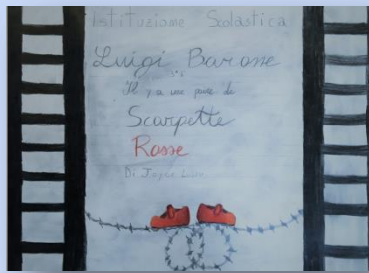 Istituzione Scolastica
Luigi Barone
3ª E
Il y a une paire de
Scarpette
Rosse
Di Joyce